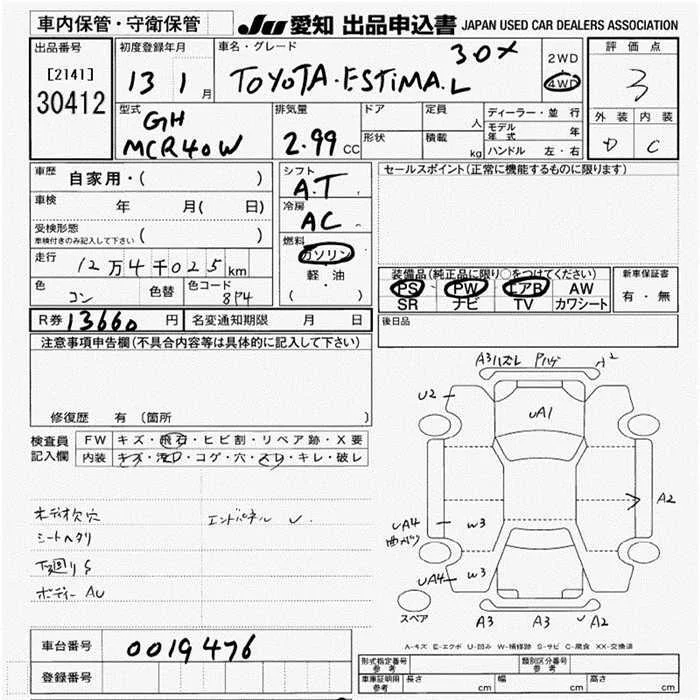 車内保管・守衛保管 JU 愛知 出品申込書 JAPAN USED CAR DEALERS ASSOCIATION
出品番号 初度登録年月 車名・グレード 3.0X 2WD 評価点
[2141] 13 1 月 TOYOTA・ESTIMA.L 4WD 3
30412 型式 排気量 ドア 定員 人 ディーラー・並行 外装 内装
GH モデル年式 年
MCR40W 2.99 CC 形状 積載 kg ハンドル 左・右 D C
車歴 自家用・( ) シフト セールスポイント(正常に機能するものに限ります)
A.T
車検 年 月( 日) 冷房
AC
受検形態
車検付きのみ記入して下さい ( ) 燃料
走行 12万4千025km ガソリン 装備品(純正品に限り○をつけてください) 新車保証書
軽・油 PS PW エアB AW 有・無
色 コン 色替 色コード 8P4 ( ・ ) SR ナビ TV カワシート
R券 13660 円 名変通知期限 月 日 後日品
注意事項申告欄(不具合内容等は具体的に記入して下さい)
修復歴 有 (箇所 )
検査員 FW キズ・飛石・ヒビ割・リペア跡・X要
記入欄 内装 キズ・汚レ・コゲ・穴・スレ・キレ・破レ
A3ハズレ Pハゲ
U2
UA1
A2
UA4 W3
UA4 W3
スペア A3 A3 A2
オーディオ欠 穴 エンドパネル U
シートヘタリ
下廻りS
ボディー AU
A-キズ E-エクボ U-凹み W-補修跡 S-サビ C-腐食 XX-交換済
車台番号 0019476
登録番号
型式指定番号 参考 類別区分番号 参考
車庫証明用 参考 長さ cm 幅 cm 高さ cm